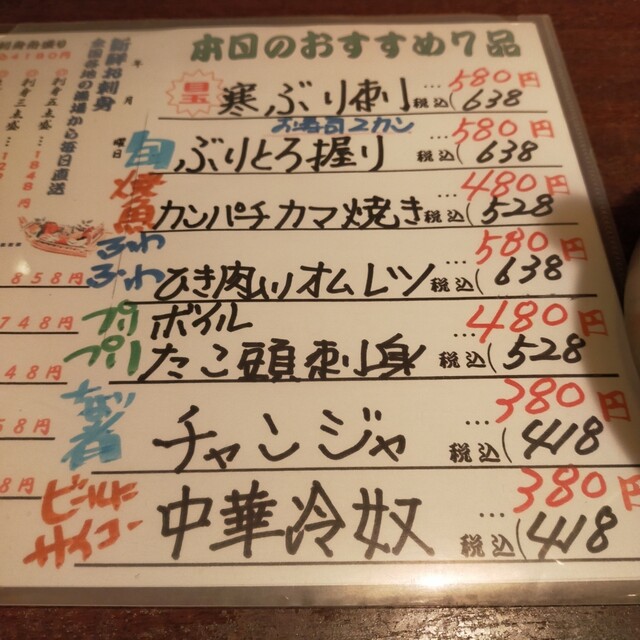 本日のおすすめ7品
目玉 寒ぶり刺 …580円
税込(638
旬 お寿司2カン …580円
ぶりとろ握り 税込(638
焼魚 カンパチカマ焼き …480円
税込(528
ふわふわ ひき肉入りオムレツ …580円
税込(638
プリプリ ボイル …480円
たこ頭刺身 税込(528
チャンジャ …380円
税込(418
ビールにサイコー 中華冷奴 …380円
税込(418
年 月 曜日
新鮮お刺身
全国各地の漁場から毎日直送
4180円
858円
748円
48円
58円
8円